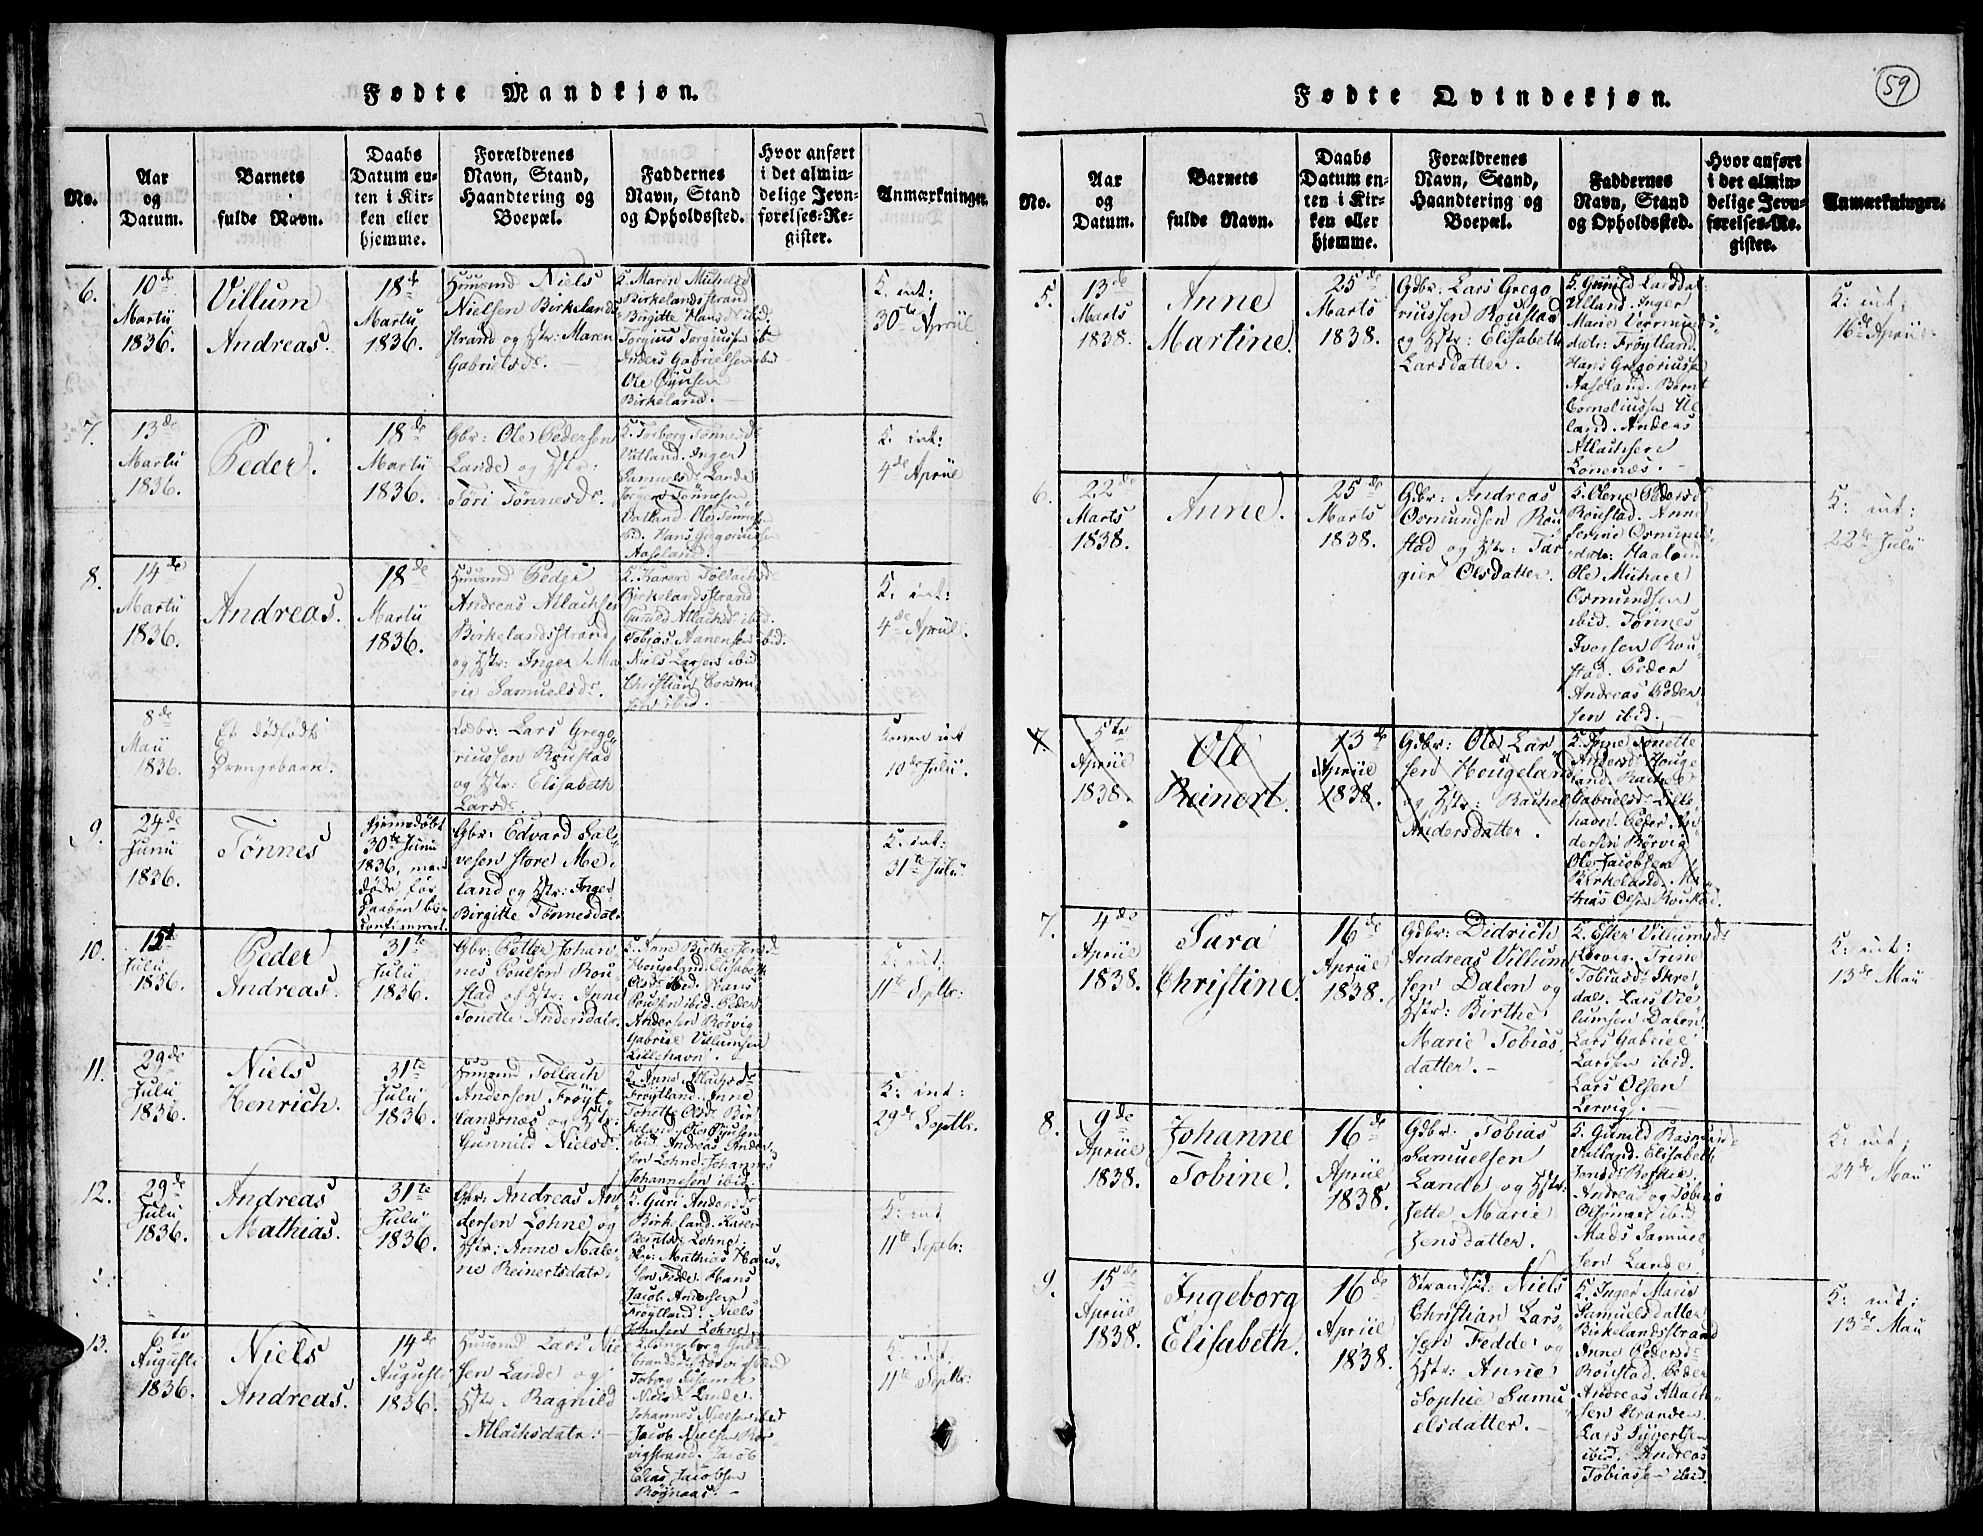 Fødte Mandkjøn.
No.
Aar
og
Datum.
Barnets
fulde Navn.
Daabs
Datum en-
ten i Kir-
ken eller
hjemme.
Forældrenes
Navn, Stand,
Haandtering og
Boepæl.
Faddernes
Navn, Stand
og Opholdssted.
Hvor anført
i det almin-
delige Jevn-
førelses-Re-
gister.
Anmærkninger.
6.
10de
Martii
1836.
Villum
Andreas.
18de
Martii
1836.
Huusmd Niels
Nielsen Birkelands
strand og Hstr: Maren
Gabrielsdr.
Birkelandsstrand
Birgitte Hansd: ibid.
Anders Gabrielsen ibid
Birkeland.
K. int:
30te Aprül
7.
13de
Martii
1836.
Peder.
18de
Martii
1836.
Gbr: Ole Pedersen
Lande og Hstr:
Töri Tönnesdr.
K. Torborg Tönnesdr
Vatland. Inger
Samuelsdr Lande
Jörgen Tönnesen
Vatland. Ole Tönnes
ibid. Hans Gregoriussen
Aaseland.
K. int:
4de Aprül
8.
14de
Martii
1836.
Andreas.
18de
Martii
1836.
Huusmd Peder
Andreas Atlachsen
Birkelandsstrand
og Hstr: Inger Ma
rie Samuelsdr.
K. Karen Tollachsdr
Birkelandsstrand
Gunild Atlachsd: ibid.
Tobias Aanensen ibid.
Niels Larsen ibid
Christian
ibid.
K. int:
4de Aprül.
8de
Mai
1836.
Et dödfödt
Drengebarn.
Gdbr: Lars Grego
riussen Röustad
og Hstr: Elisabeth
Larsdr.
Konen int
10de Julii.
9.
24de
Junii
1836.
Tönnes
Hjemmedöbt
30te Junii
1836, men
döde för
Daaben
Gbr: Edvard Sal
vesen store Me-
land og Hstr: Inger
Birgitte Tönnesdatr.
K. int:
31te Julii
10.
15de
Julii
1836.
Peder
Andreas.
31te
Julii
1836.
Gbr: Petter Johan
nes Poulsen Rou
stad og Hstr: Anne
Tonette Andersdatr.
K. Anne Birthe
Hougeland. Elisabeth
Olsdr ibid. Hans
Poulsen ibid. Peder
Andersen Rörvig
Gabriel Villumsen
Lillehavn.
K. int:
11te Septbr:
11.
29de
Julii
1836.
Niels
Henrich.
31te
Julii
1836.
Huusmd Tollach
Andersen Fröyt-
landsnæs og Hstr:
Gunnild Nielsdr.
K. Anne Atlachsdr
Fröytland. Anne
Tonette Olsdr Bir
keland. Ole
ibid. Andreas Ander
sen Lohne. Johannes
Johannesen ibid.
K: int:
29de Septbr.
12.
29de
Julii
1836.
Andreas
Mathias.
31te
Julii
1836.
Gbr: Andreas An
dersen Lohne og
Hstr: Anne Male-
ne Reinertsdatr.
K. Guri Andersdr
Birkeland. Karen
Lohne.
Mathias Han-
sen Fedde. Hans
Jacob Andersen
Fröytland. Niels
Johnsen Lohne.
K: int
11te Septbr:
13.
6te
Augusti
1836.
Niels
Andreas.
14de
Augusti
1836.
Huusmd Lars Niel
sen Lande og
Hstr Ragnild
Atlachsdatr.
Nielsdr Lande.
Johannes Nielsen ibid
Jacob Nielsen Rör
vigstrand. Jacob
Elias Jacobsen
Röynaas.
K. int.
11te Septbr:
59
Fødte Qvindekjøn.
No.
Aar
og
Datum.
Barnets
fulde Navn.
Daabs
Datum en-
ten i Kir-
ken eller
hjemme.
Forældrenes
Navn, Stand,
Haandtering og
Boepæl.
Faddernes
Navn, Stand
og Opholdssted.
Hvor anført
i det almin-
delige Jevn-
førelses-Re-
gister.
Anmærkninger.
5.
13de
Marts
1838.
Anne
Martine.
25de
Marts
1838.
Gdbr: Lars Grego
riussen Röustad
og Hstr: Elisabeth
Larsdatter.
K. Gunild Larsdat
Ulland. Inger
Marie Vermunds
datr: Fröytland.
Hans Gregoriussen
Aaseland. Bernt
Corneliussen Ul
land. Andreas
Atlachsen
Lonenæs.
K: int:
16de Aprül
6.
22de
Marts
1838.
Anne.
25de
Marts
1838.
Gdbr: Andreas
Osmundsen Röu
stad og Hstr: Tar
gier Olsdatter.
K. Olene Pedersd
Röustad. Anne
Serine Osmunds
datr:
Ole Michael
Osmundsen
ibid. Tönnes
Iversen Röu
stad. Peder
Andreas Peder
sen ibid.
K: int:
22de Julii
7.
5te
Aprül
1838.
Ole
Reinert.
13de
Aprül
1838.
Gdbr: Ole Lar
sen Hougeland
og Hstr: Rachel
Andersdatter.
K. Anne Tonette
Andersd Houge
land. Rachel
Gabrielsdr Lille
havn. Peder An
dersen Rörvig
Ole Jacobsen
Birkeland. Ma
thias Olsen Röustad.
7.
4de
Aprül
1838.
Sara
Christine.
16de
Aprül
1838.
Gdbr: Didrich
Andreas Villum
sen Dalen og
Hstr: Birthe
Marie Tobias
datter.
K. Ester Villumsd:
Lervig. Trine
Tobiasdr Skre
dal. Lars Vil
lumsen Dalen
Lars Gabriel
Larsen ibid.
Lars Olsen
Lervig.
K: int:
13de Mai
8.
9de
Aprül
1838.
Johanne
Tobine.
16de
Aprül
1838.
Gdbr: Tobias
Samuelsen
Lande og Hstr:
Jette Marie
Jensdatter.
K. Gunild Rasmus
Vatland. Elisabeth
Andreas og Tobias
Olsönner ibid.
Mads Samuel
sen Lande.
K: int:
24de Mai
9.
15de
Aprül
1838.
Ingeborg
Elisabeth.
16de
Aprül
1838.
Strandsid: Niels
Christian Lars-
sen Fedde og
Hstr: Anne
Sophie Samu
elsdatter.
K. Inger Marie
Samuelsdatter
Birkelandsstrand
Anne Pedersdr
Röustad. Peder
Andreas Atlach-
sen Stranden.
Lars Sygertsen
ibid. Andreas
Tobiasen ibid.
K: int:
13de Mai